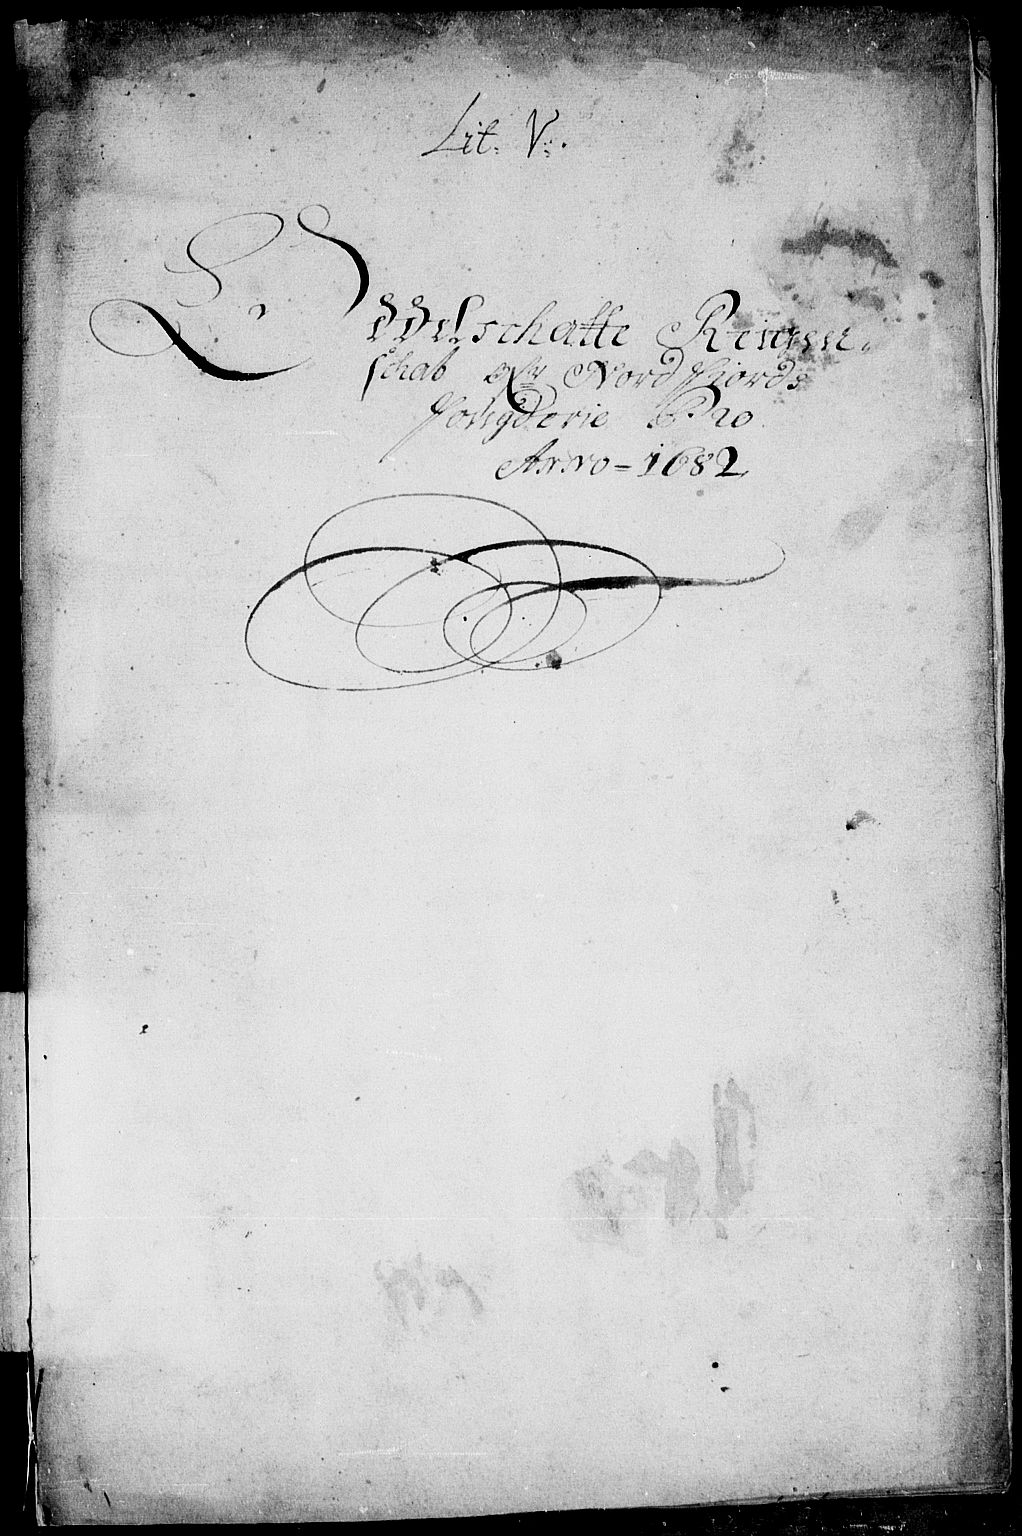 Lit: V:.
Odelschatte Regen-
schab af Nordfiords
Fougderie Pro
Anno - 1682